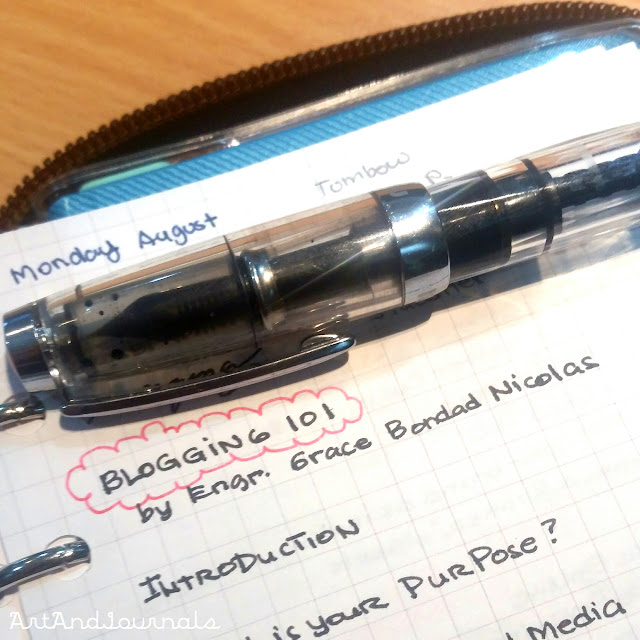 Tombow
Monday August
BLOGGING 101
by Engr. Grace Bondad Nicolas
INTRODUCTION
is your PURPOSE?
Media
ArtAndJournals